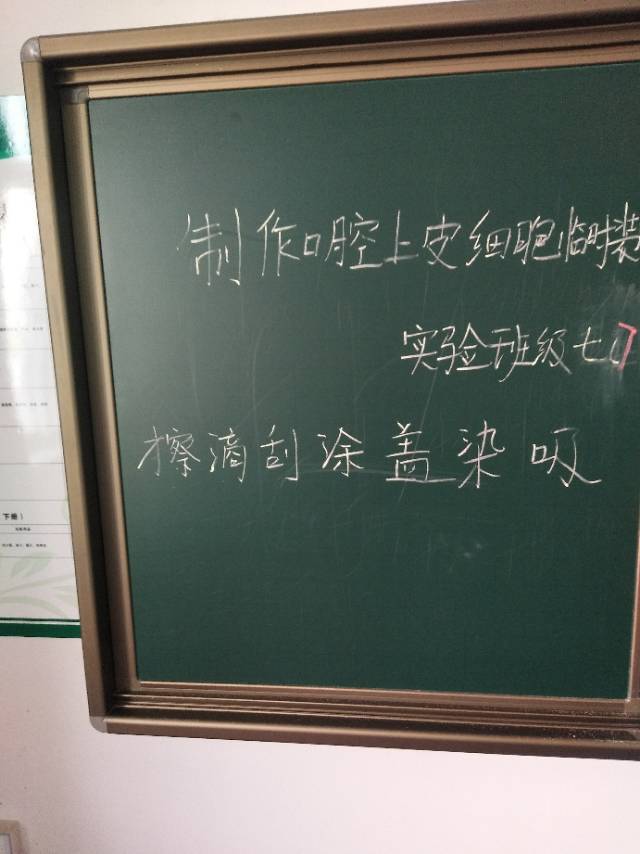 制作口腔上皮细胞临时装
实验班级七
擦滴刮涂盖染吸
（下册）